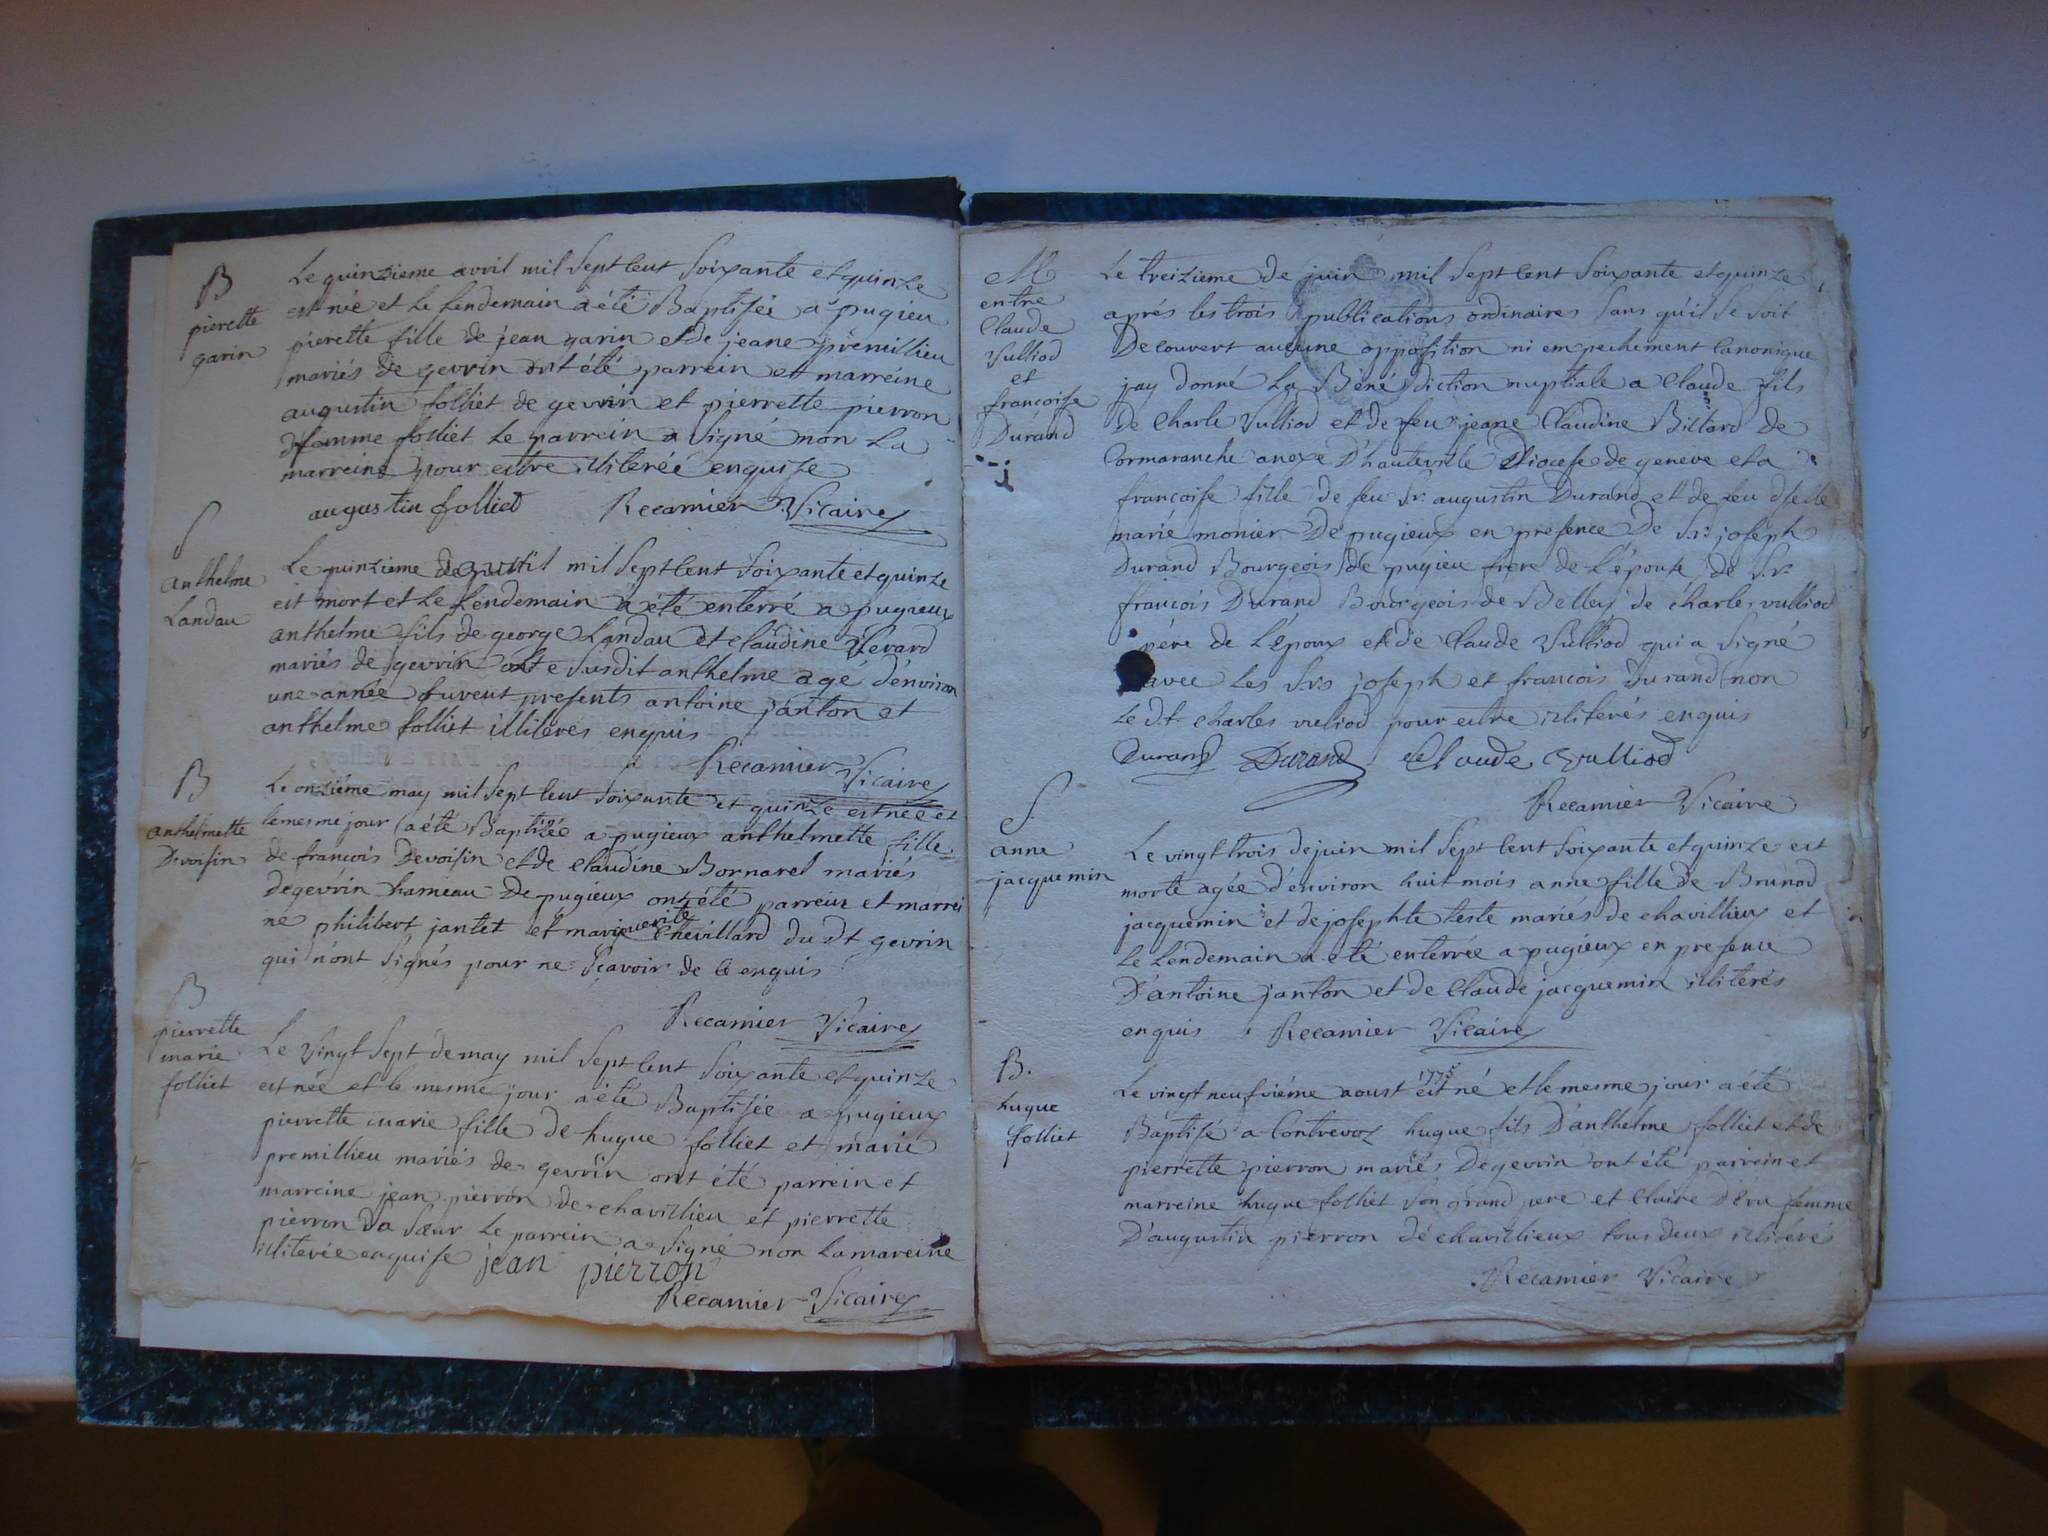 B
pierette
garin
Le quinzieme avril mil Sept Cent Soixante et quinze
est née et le Lendemain a été Baptisée a pugieu
pierette fille de jean garin et de jeane premillieu
mariés de gevrin ont été parrein et marreine
augustin folliet de gevrin et pierrette pierron
femme folliet Le parrein a Signé non La
marreine pour estre illiterée enquise
augustin folliet Recamier Vicaire
S
anthelme
Landau
Le quinzieme avril mil Sept Cent Soixante et quinze
est mort et Le Lendemain a été enterré a pugieux
anthelme fils de george Landau et Claudine
mariés de gevrin Susdit anthelme agé d'environ
une année furent presents antoine janton et
anthelme folliet illiterés enquis
Recamier Vicaire
B
anthelmette
Devoisin
Le onziéme may mil Sept Cent Soixante et quinze est née et
le mesme jour a été Baptizée a pugieux anthelmette fille
de francois Devoisin et de Claudine Bornarel mariés
de gevrin hameau De pugieux ont été parrein et marrei
ne philibert jantet et marguerite Chevillard du dt gevrin
qui n'ont Signés pour ne Sçavoir de ce enquis
Recamier Vicaire
B
pierrette
marie
folliet
Le Vingt Sept de may mil Sept Cent Soixante et quinze
est née et le mesme jour a été Baptisée a pugieux
pierrette marie fille de hugue folliet et marie
premillieu mariés de gevrin ont été parrein et
marreine jean pierron de chavillieu et pierrette
pierron Sa Sœur Le parrein a Signé non La mareine
illiterée enquise jean pierron
Recamier Vicaire
M
entre
Claude
Vulliod
et
françoise
Durand
Le treizieme de juin mil Sept Cent Soixante et quinze
aprés les trois publications ordinaires Sans qu'il Se Soit
Decouvert aucune opposition ni empechement Canonique
jay donné La Béné diction nuptiale a Claude fils
de Charle Vulliod et de feu jeane Claudine Billard de
Cormaranche anexe D'hauteville Diocese de geneve et a
françoise fille de feu Sr. augustin Durand et de feu dselle
marie monier De pugieux en presence De Sr. joseph
Durand Bourgeois de pugieu frere de L'épouse, de Sr.
francois Durand Bourgeois de Belley de charles vulliod
pére de L'époux et de Claude Vulliod qui a Signé
avec Les Srs joseph et francois Durand non
Le dt. charles vuliod pour estre illiterés enquis
Durand Durand Claude vulliod
Recamier Vicaire
S
anne
jacquemin
Le vingt trois de juin mil Sept Cent Soixante et quinze est
morte agée d'environ huit mois anne fille de Brunod
jacquemin et de josephte teste mariés de chavillieux et
Le Lendemain a été enterrée a pugieux en presence
D'antoine janton et de Claude jacquemin illiterés
enquis Recamier Vicaire
B.
hugue
folliet
Le vingt neufviéme aoust 1775 est né et le mesme jour a été
Baptisé a Contrevoz hugue fils D'anthelme folliet et de
pierrette pierron mariés De gevrin ont été parrein et
marreine hugue folliet Son grand pere et Claire femme
D'augustin pierron de chavillieux tous deux illiterés
Recamier Vicaire